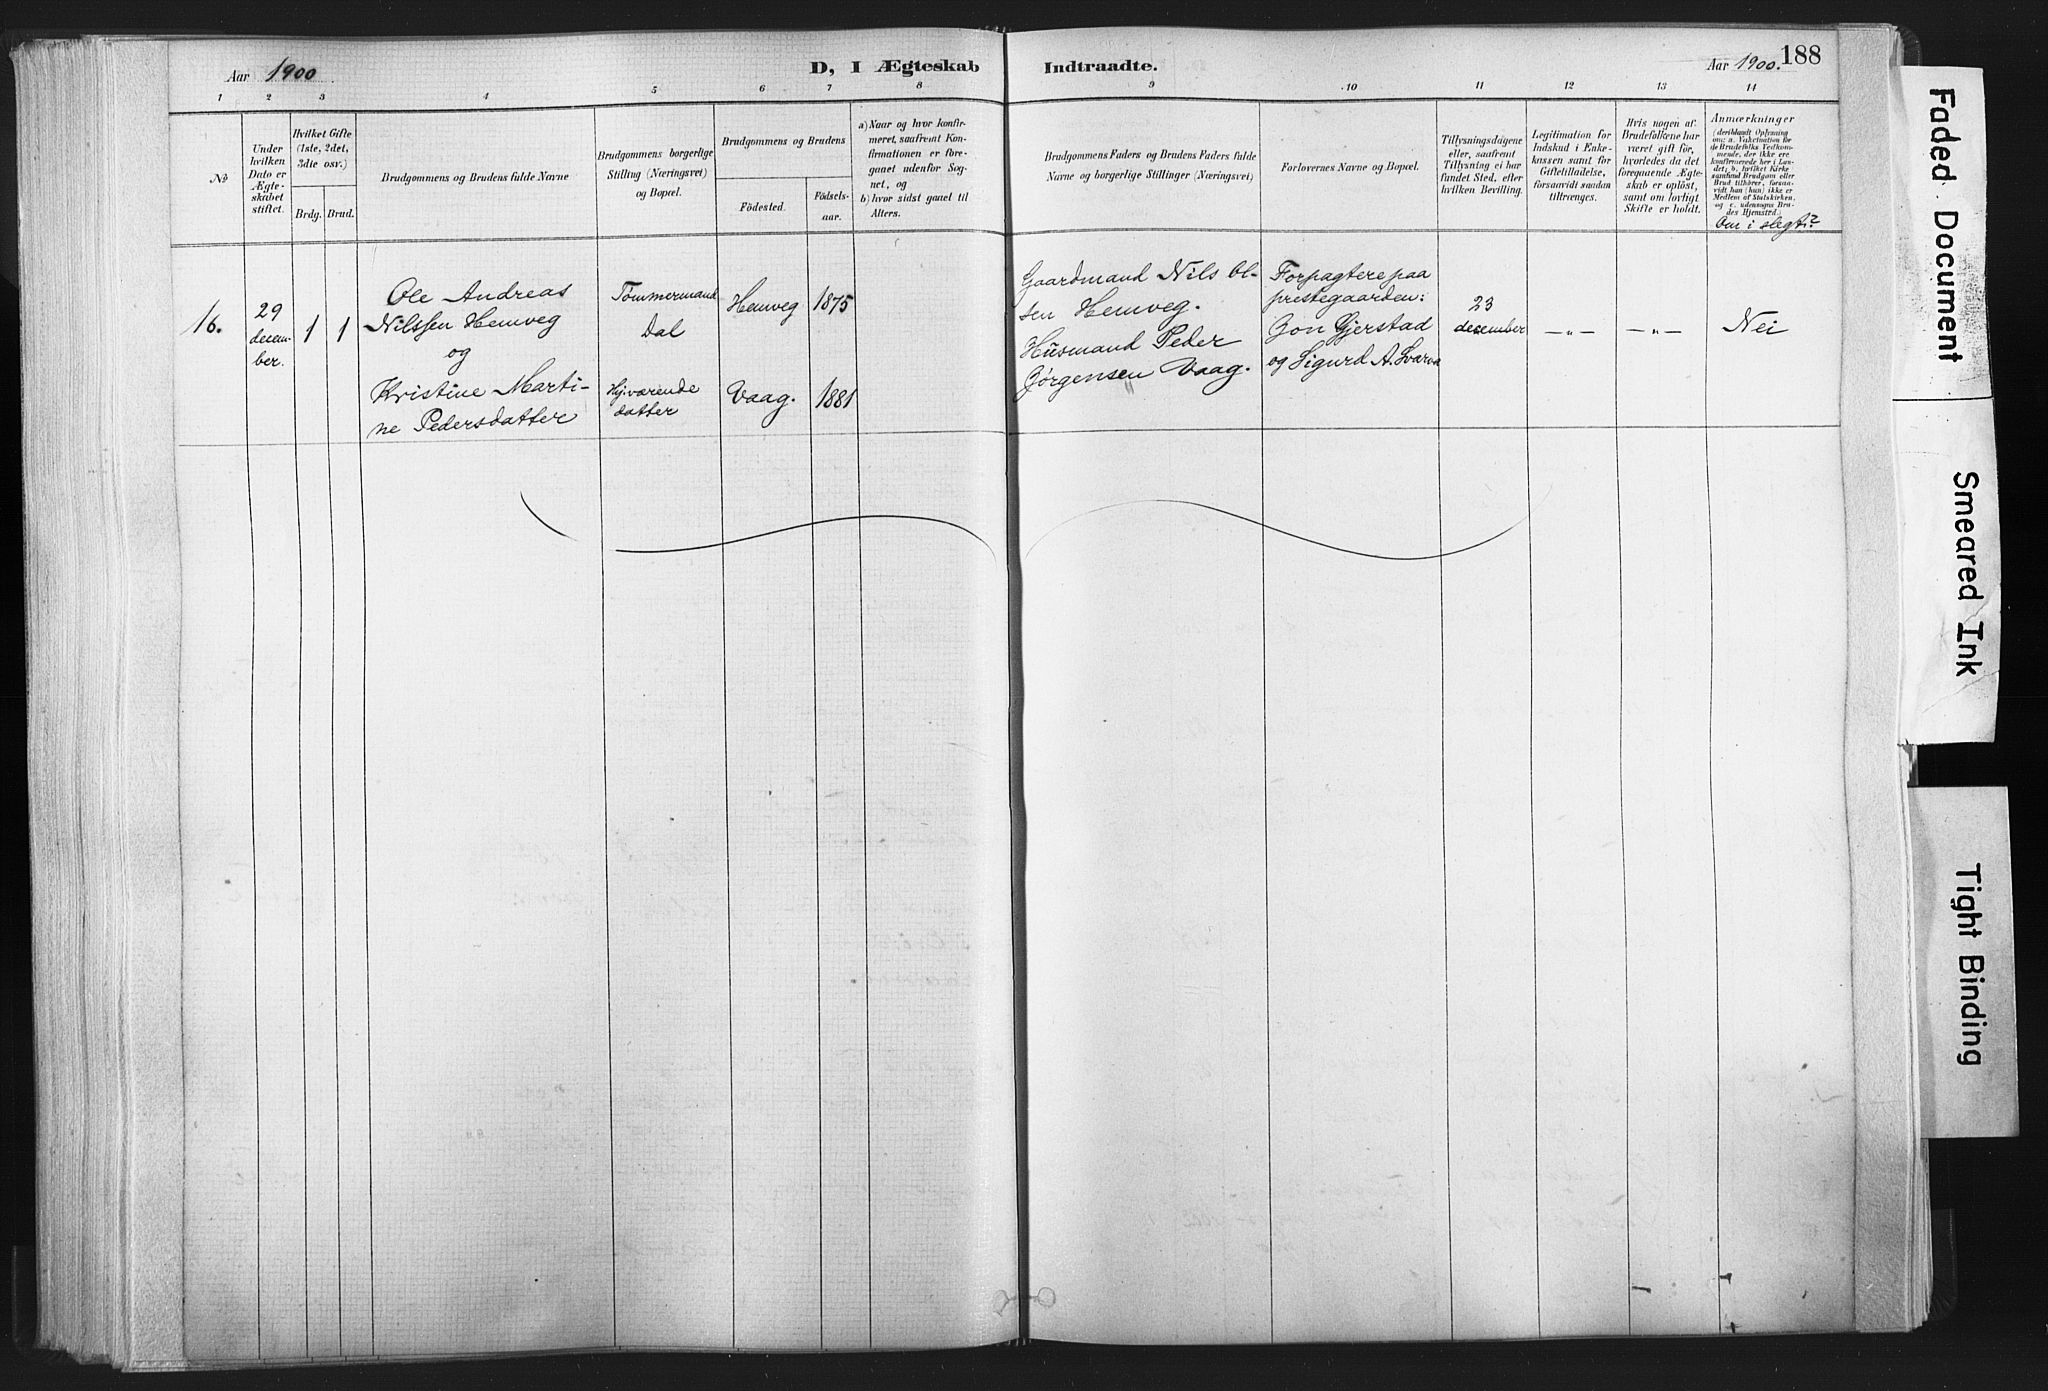 Aar 1900
D, I Ægteskab Indtraadte.
Aar 1900. 188
1 2 3 4 5 6 7 8 9 10 11 12 13 14
No
Under
hvilken
Dato er
Ægte-
skabet
stiftet.
Hvilket Gifte
(1ste, 2det,
3die osv.)
Brdg. Brud.
Brudgommens og Brudens fulde Navne
Brudgommens borgerlige
Stilling (Næringsvei)
og Bopæl.
Brudgommens og Brudens
Födested.
Födsels-
aar.
a) Naar og hvor konfir-
meret, saafremt Kon-
firmationen er fore-
gaaet udenfor Sog-
net, og
b) hvor sidst gaaet til
Alters.
Brudgommens Faders og Brudens Faders fulde
Navne og borgerlige Stillinger (Næringsvei)
Forlovernes Navne og Bopæl.
Tillysningsdagene
eller, saafremt
Tillysning ei har
fundet Sted, efter
hvilken Bevilling.
Legitimation for
Indskud i Enke-
kassen samt for
Giftetilladelse,
forsaavidt saadan
tiltrænges.
Hvis nogen af
Brudefolkene har
været gift för,
hvorledes da det
foregaaende Ægte-
skab er oplöst,
samt om lovligt
Skifte er holdt.
Anmærkninger
(deriblandt Oplysning
om: a. Vakcination for
de Brudefolks Vedkom-
mende, der ikke ere
konfirmerede her i Lan-
det; b. hvilket Kirke
samfund Brudgom eller
Brud tilhörer, forsaa-
vidt han (hun) ikke er
Medlem af Statskirken,
og c. udensogns Bru-
des Hjemsted.)
Om i slegt?
16.
29
decem-
ber.
1 1
Ole Andreas
Nilssen Hemveg
og
Kristine Marti-
ne Pedersdatter
Tømmermand
Dal
Hj.værende
datter
Hemveg 1875
Vaag. 1881
Gaardmand Nils Ol-
sen Hemveg.
Husmand Peder
Jørgensen Vaag.
Forpagtere paa
prestegaarden:
Jon Gjerstad
og Sigurd A. Svarva
23
december
—„—
—„—
Nei
Faded Document
Smeared Ink
Tight Binding